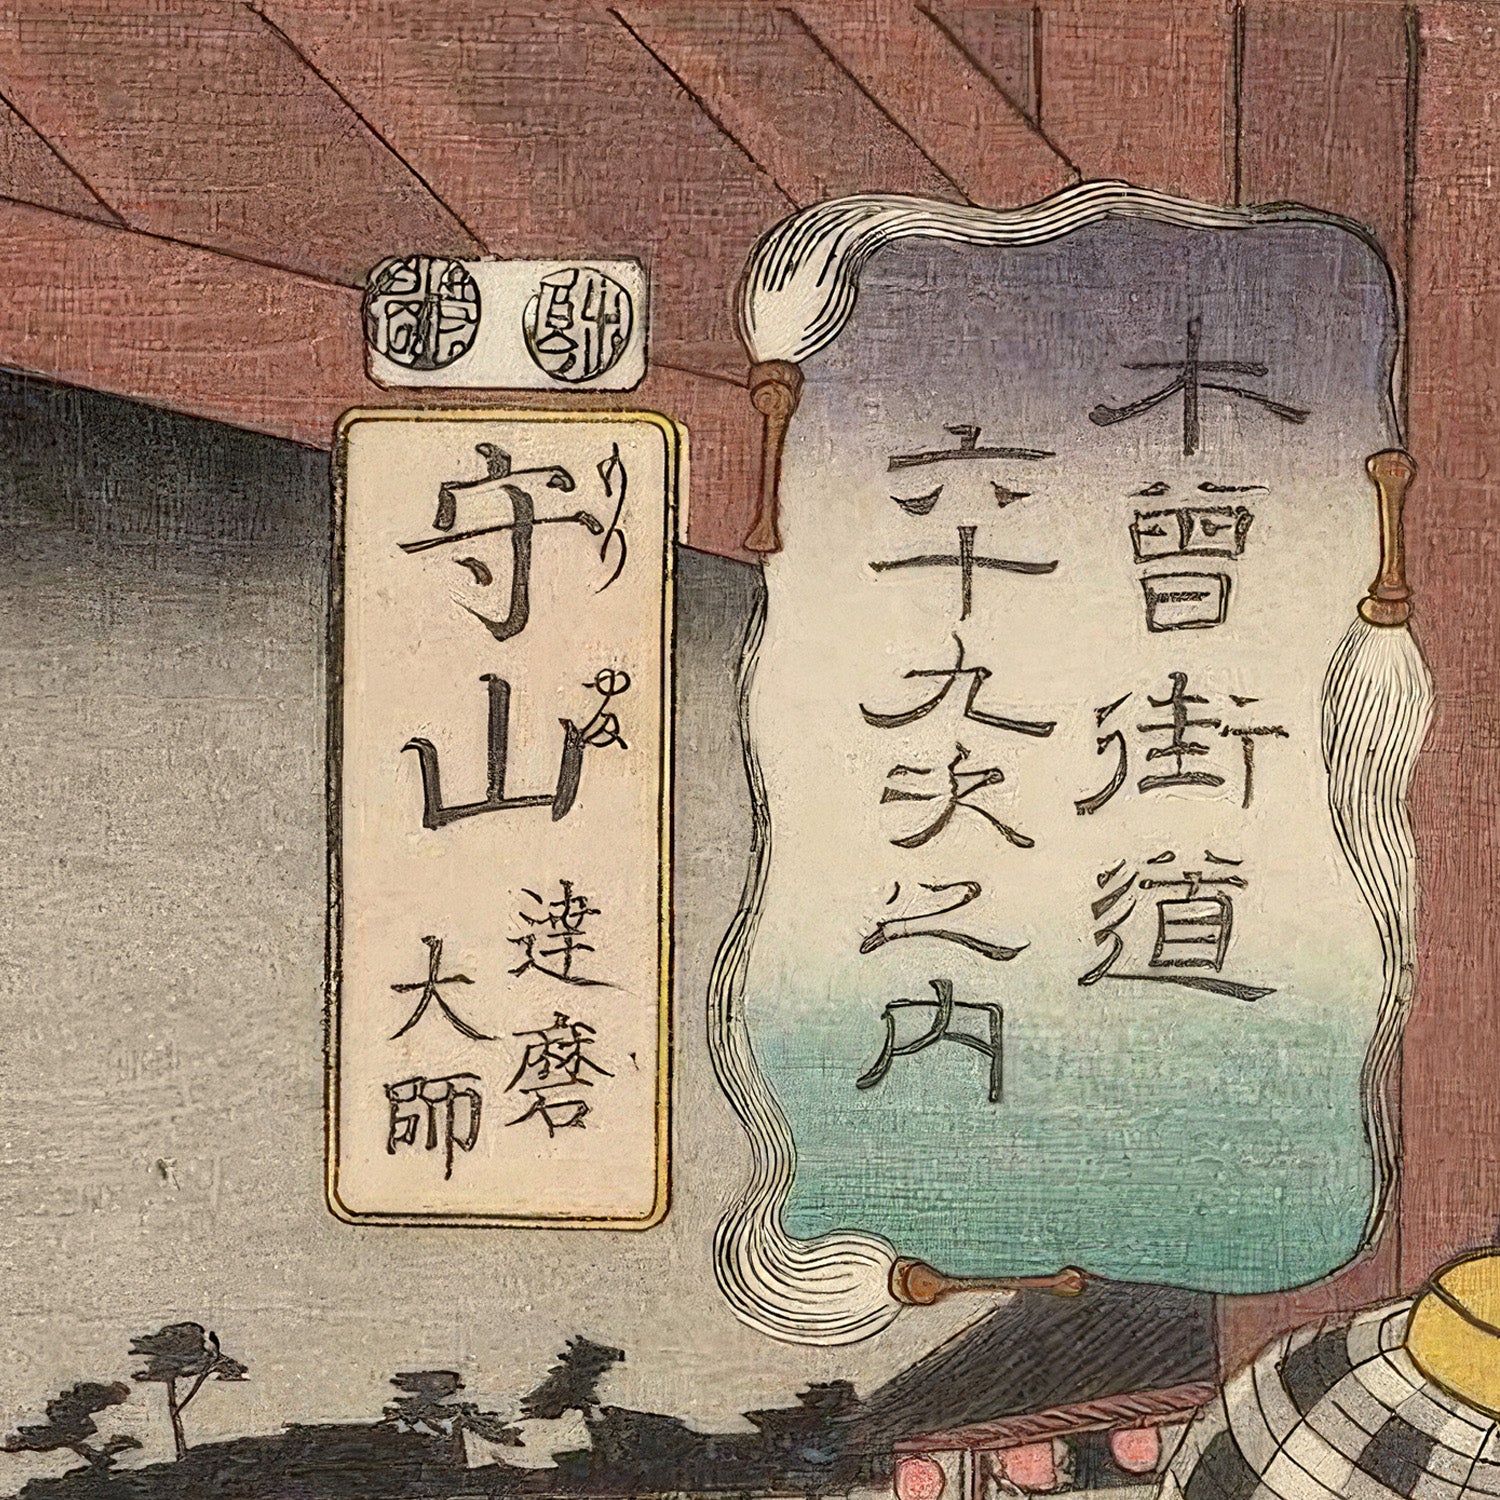 木曾街道
六十九次之内
守山
もり
やま
達磨
大師